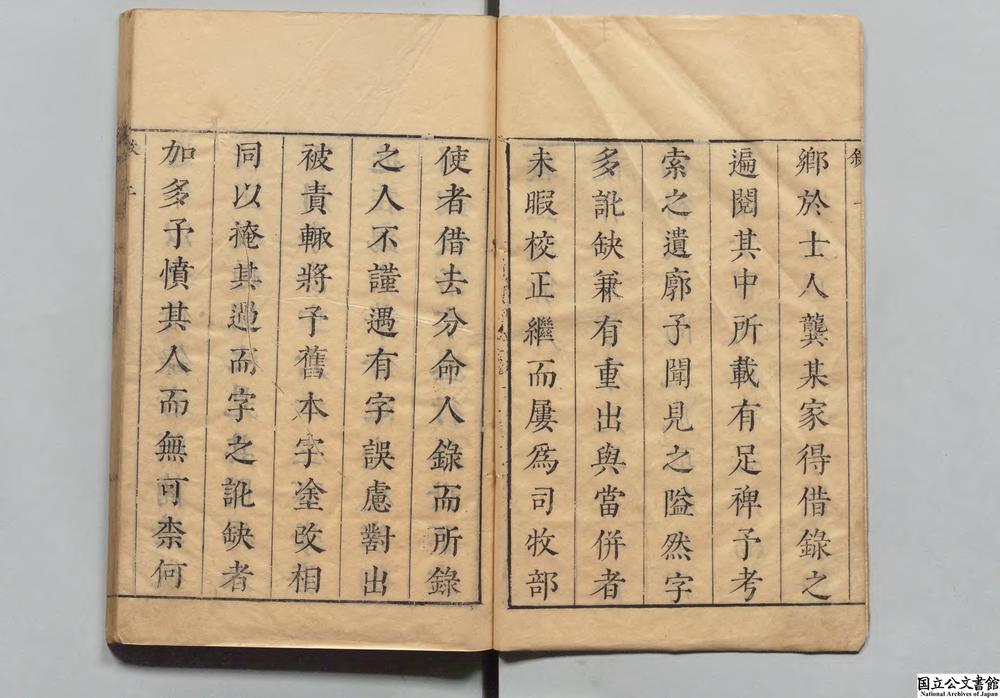 鄉於士人龔某家得借錄之
遍閱其中所載有足禆予考
索之遺廓予聞見之隘然字
多訛缺兼有重出與當併者
未暇校正繼而屢爲司牧部
使者借去分命人錄而所錄
之人不謹遇有字誤慮對出
被責輒將予舊本字塗改相
同以掩其過而字之訛缺者
加多予憤其人而無可柰何
国立公文書館
National Archives of Japan